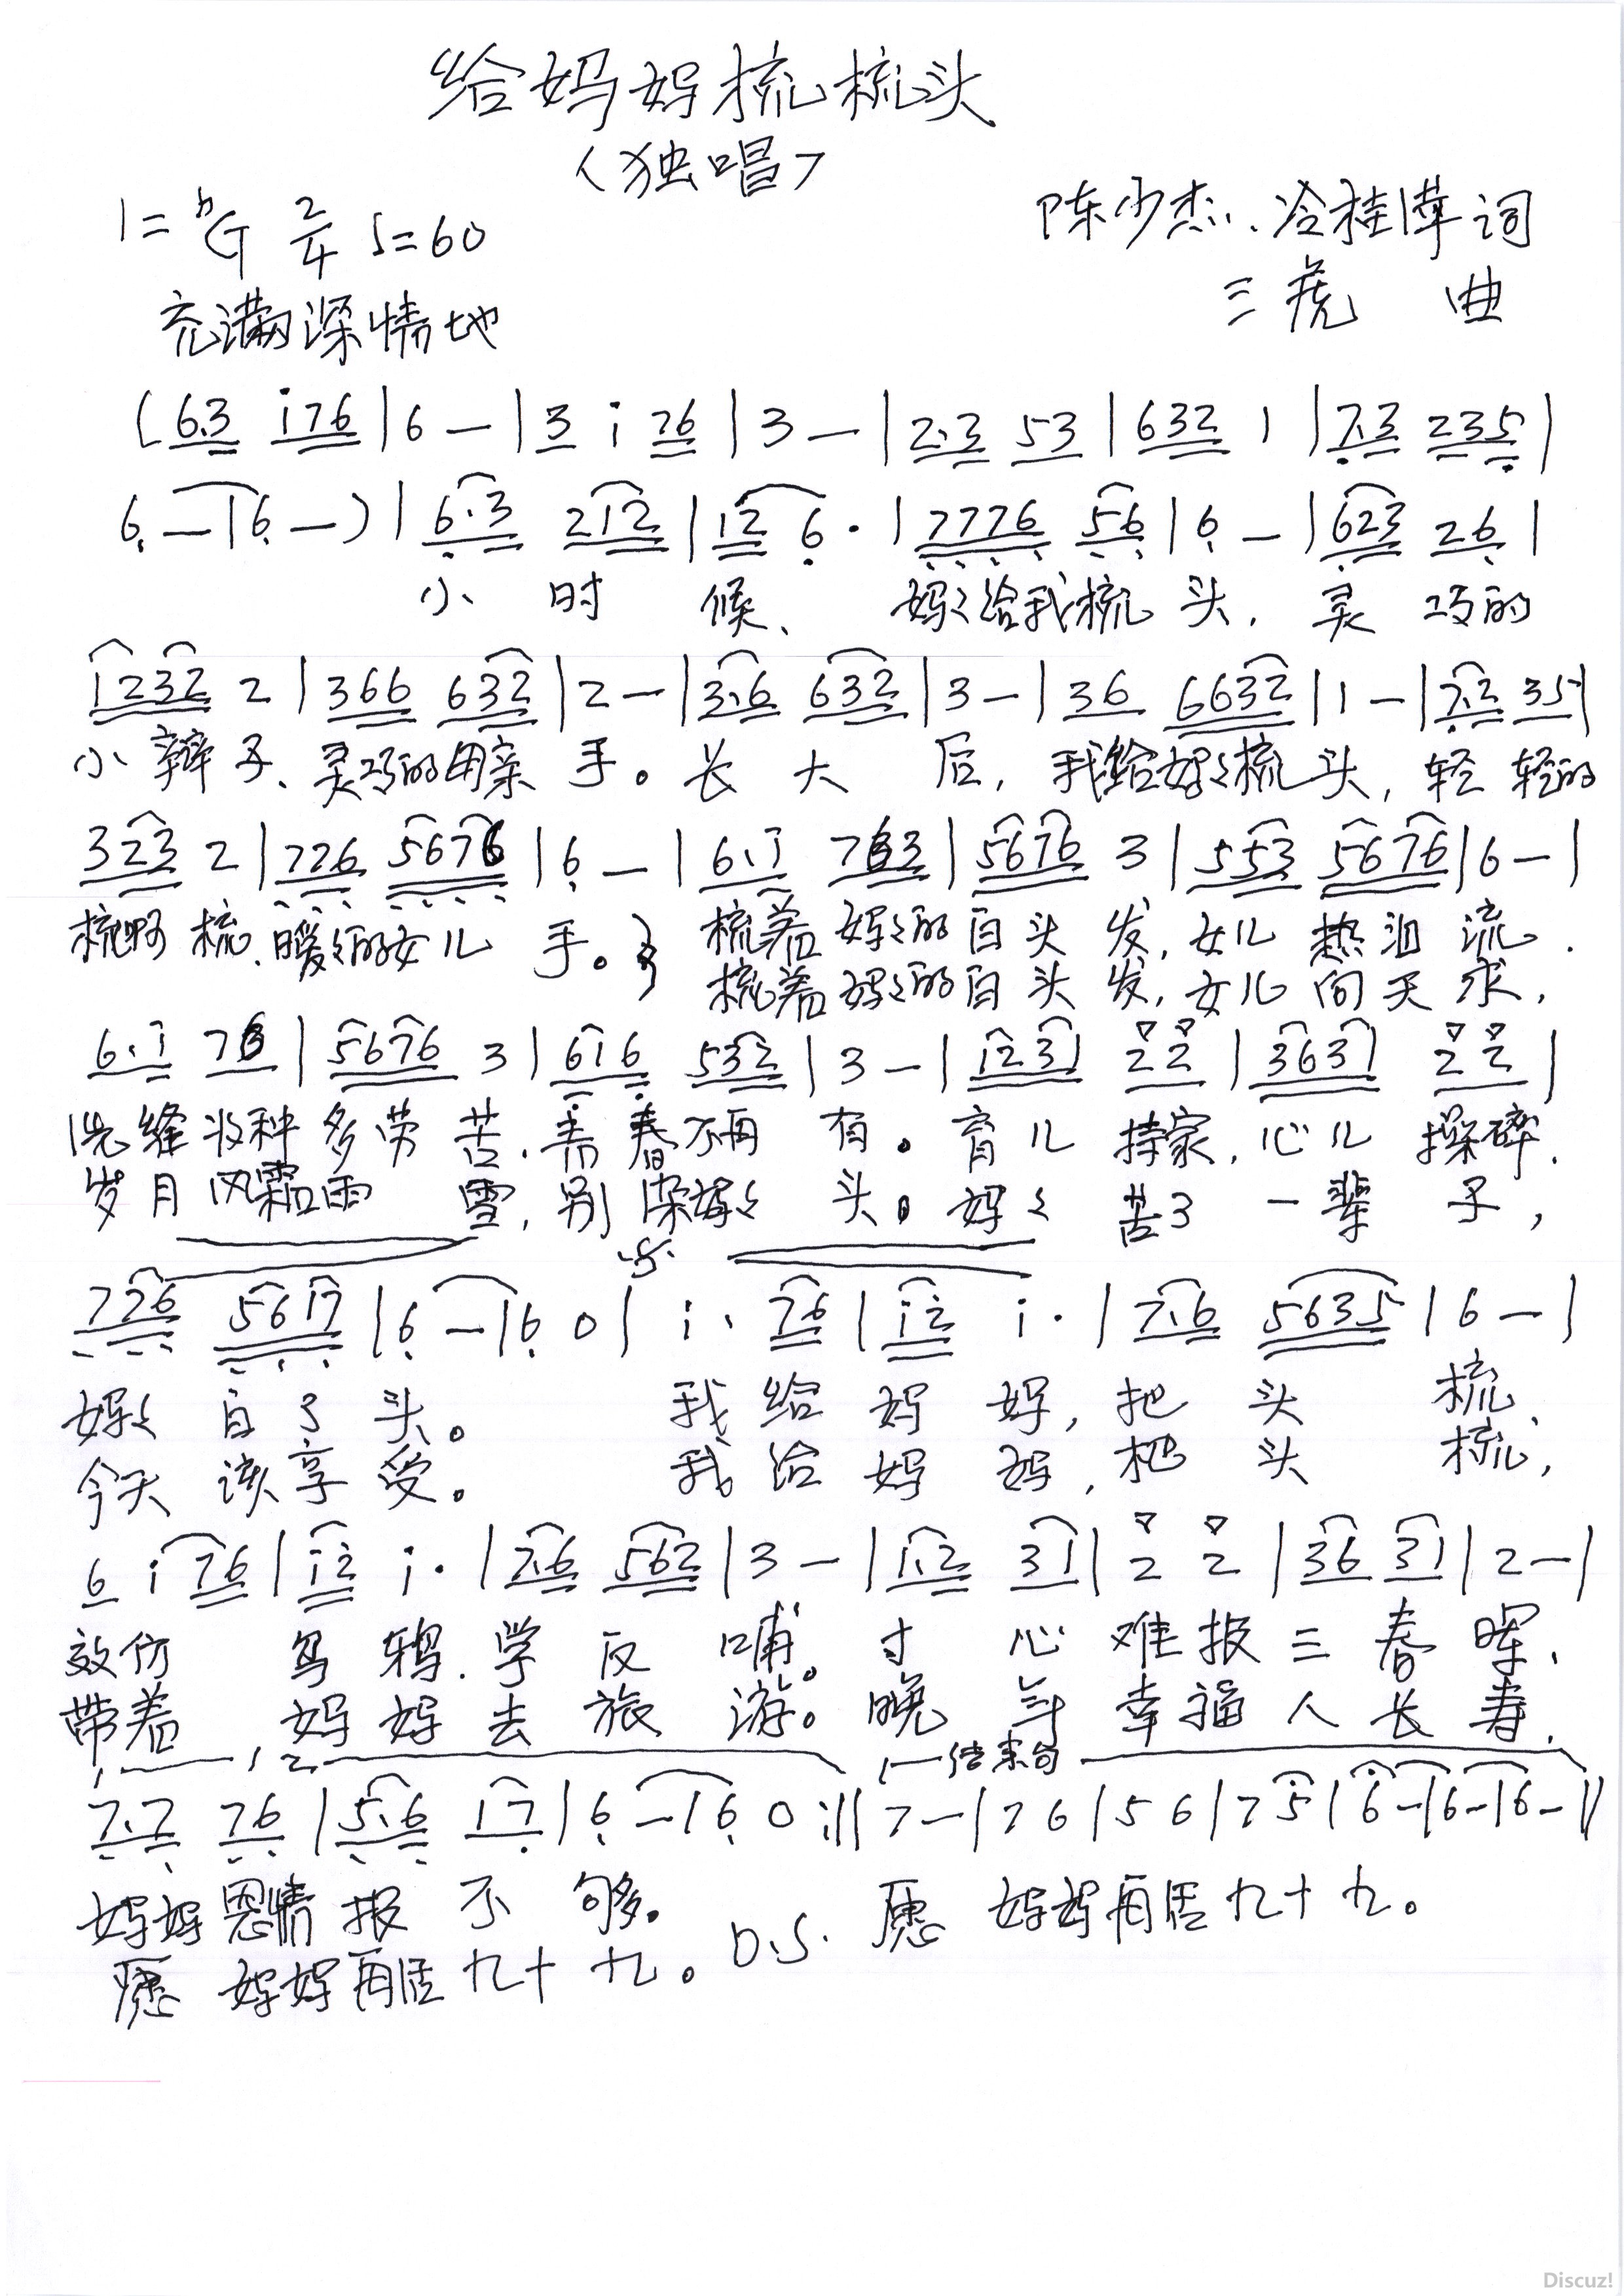 给妈妈梳梳头
〈独唱〉
1=ᵇG 2/4 ♩=60
陈少杰、冷桂萍 词
充满深情地
三虎 曲
(6.3 i76|6 —|3 i 76|3 —|2.3 53|632 1|7.3 235|
6 —|6 —)|6.3 212|12 6·|7776 56|6 —|623 26|
小 时 候、 妈々给我梳 头, 灵 巧的
1232 2|366 632|2 —|3.6 632|3 —|36 6632|1 —|7.2 35|
小 辫 子、灵巧的母亲 手。长 大 后, 我给妈々梳 头, 轻 轻的
323 2|726 5676|6 —|6.i 763|5676 3|553 5676|6 —|
梳啊 梳、暖々的女儿 手。 梳着妈々的白头 发, 女儿 热泪 流.
梳着妈々的白头 发, 女儿 问天 求,
6.i 76|5676 3|616 532|3 —|1231 22|3631 22|
洗缝收种多劳 苦, 青春不再 有。育儿 持家, 心儿 操碎.
岁月风霜雨 雪, 别染妈々 头。妈々 苦了 一辈 子,
726 5617|6 —|6 0|i· 76|i2 i·|7.6 5635|6 —|
妈々 白了 头。 我 给 妈 妈, 把 头 梳、
今天 该享 受。 我 给 妈 妈, 把 头 梳,
6 i 76|i2 i·|7.6 562|3 —|1.2 31|2 2|36 31|2 —|
效仿 乌 鸦.学 反 哺。寸 心 难 报 三 春 晖、
带着 ,妈 妈 去 旅 游。晚 年 幸 福 人 长 寿,
1. 2. 结束句
7.7 76|5.6 17|6 —|6 0:‖7 —|7 6|5 6|7 5|6 —|6 —|6 —‖
妈妈恩情报 不 够。 D.S. 愿 妈妈再活九十 九。
愿 妈妈再活九十 九。
Discuz!